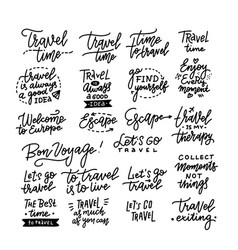 Travel
time
Travel
time
time
to travel
Travel
time
travel
is always
a good
IDEA
TRAVEL
is
always
a GOOD
IDEA
go
FIND
yourself
Enjoy
EVERY
moment
Welcome
to Europe
Escape
Escape
travel
IS MY
therapy
Bon Voyage!
Let's GO
TRAVEL
COLLECT
MOMENTS
NOT
THINGS
Let's go
travel
to travel
is to live
Let's go
travel
THE BEST
time
TO TRAVEL
TRAVEL
as much
as you can
LET'S GO
TRAVEL
travel
exiting